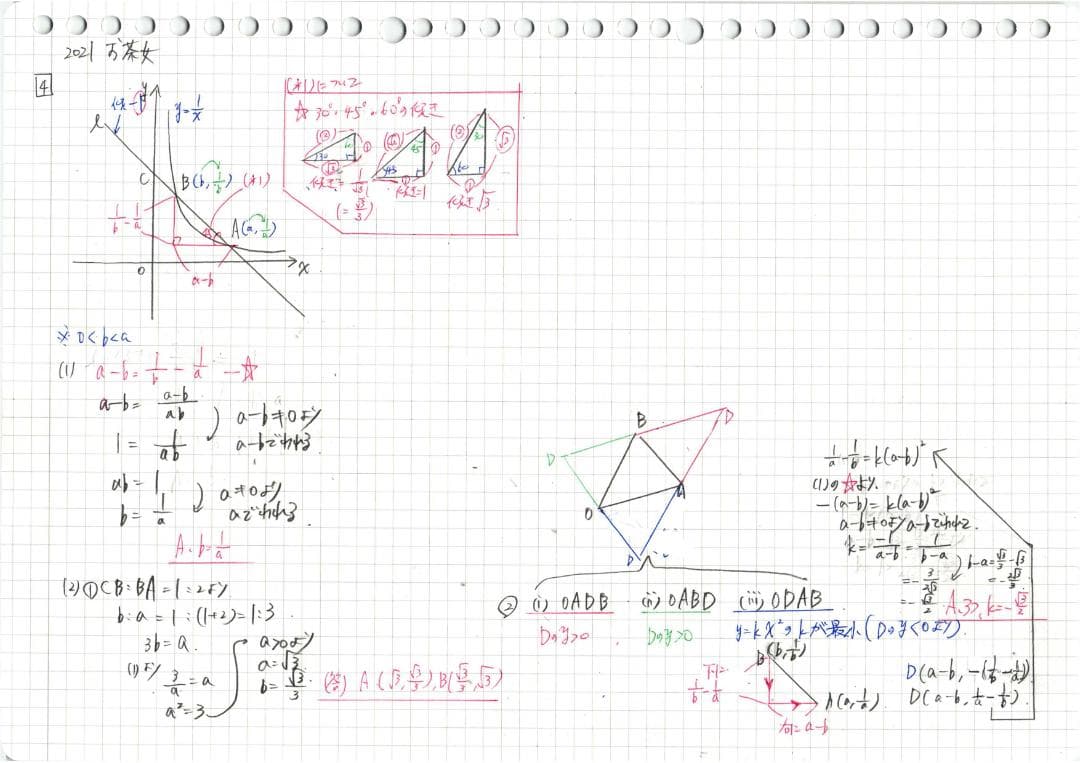 2021 お茶女
4
y
傾き-1
y=1/x
l
C
B(b, 1/b)
(※1)
1/b - 1/a
A(a, 1/a)
O
x
a-b
(※1)について
☆30°・45°・60°の傾き
② 60 ① 30 √3
傾き= 1/√3
(= √3/3)
√2 45° ① 45 ①
傾き=1
② 30 √3 60 ①
傾き√3
※ 0<b<a
(1) a-b = 1/b - 1/a —☆
a-b = (a-b)/ab
a-b≠0より
a-bでわれる
1 = 1/ab
ab = 1
a≠0より
aでわれる
b = 1/a
A. b=1/a
(2)① CB:BA=1:2より
b:a=1:(1+2)=1:3
3b=a
(1)より
3/a = a
a²=3
a>0より
a=√3
b=√3/3
(答) A(√3, √3/3), B(√3/3, √3)
B
D
D
A
O
D
②
(i) OADB
Dのy>0
(ii) OABD
Dのy>0
(iii) ODAB
y=kx²のkが最小(Dのy<0より)
B(b, 1/b)
下に=
1/b - 1/a
A(a, 1/a)
右に=a-b
D(a-b, -(1/b - 1/a))
D(a-b, 1/a - 1/b)
1/a - 1/b = k(a-b)²
(1)の☆より
-(a-b)= k(a-b)²
a-b≠0よりa-bでわれる.
k= -1/(a-b) = 1/(b-a)
b-a= √3/3 - √3
= -2√3/3
= -3/2√3
= -√3/2
A. k=-√3/2